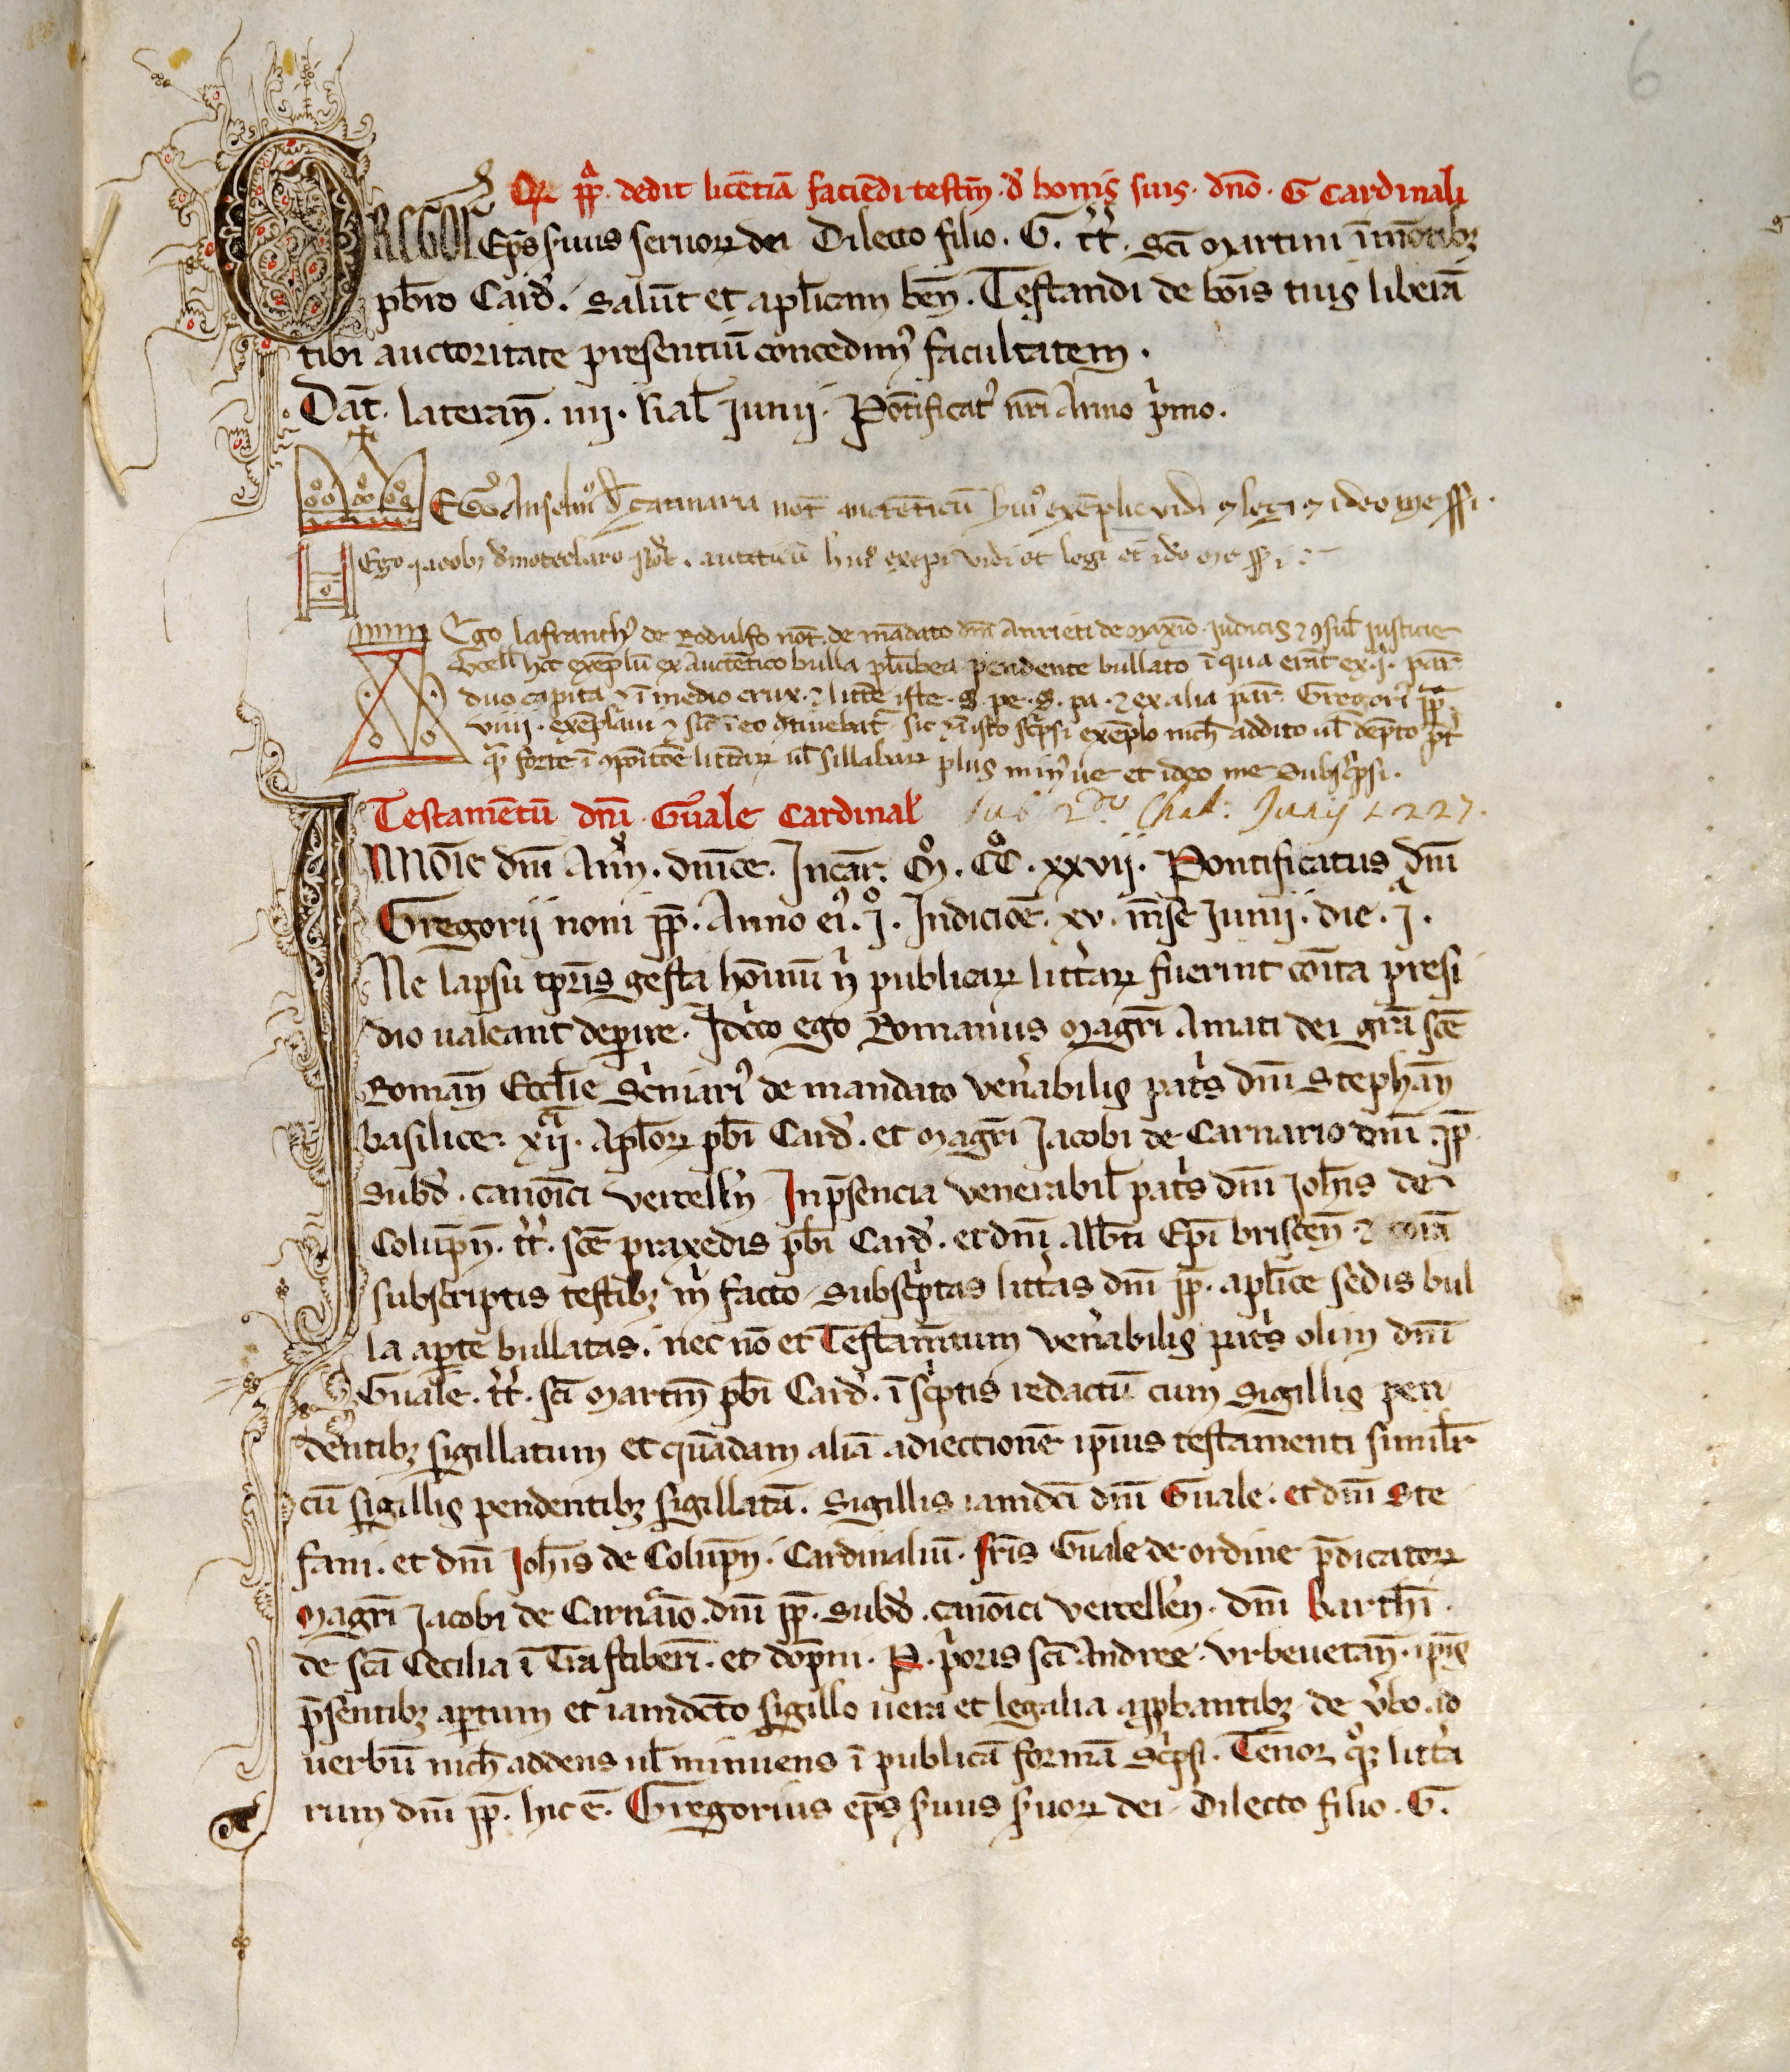 6
Qr pp. dedit licētiā faciēdi testm̄. d̄ bonis suis. dn̄o. G Cardinali
GREGORI Ep̄s seruus seruorꝝ dei Dilecto filio. G. tt̄. sc̄i Martini ī mōtibꝫ
pb̄ro Card̄. Salūt et ap̄licam ben̄. Testandi de bōis tuis liberā
tibi auctoritate presentiū concedimꝰ facultatem.
Dat̄. lateran̄. iiij. kal̄ Junij. Pōtificatꝰ nr̄i Anno p̄mo.
EGo Anselmꝰ not̄ autēticū huiꝰ exēpli vidi ⁊ legi ⁊ ideo me ss̄i.
Ego Jacobꝫ not̄. autēticū huiꝰ exēpli vidi et legi et ideo me ss̄i
Ego lafranchꝰ de Rodulfo not̄. de mādato dn̄i Anrieti de Maxīo Judicis ⁊ ꝯsul̄ Justicie
Vcell̄ hoc exēplū ex Autētico bulla plūbea pendente bullato ī qua erāt ex .j. par̄
duo capita ⁊ ī medio crux. ⁊ litt̄e iste. S. pe. S. pa. ⁊ ex alia par̄. Gregoriꝰ pp̄.
viiij. exēplaui ⁊ sic̄ ī eo ꝯtinebat̄ sic ⁊ ī isto sc̄psi exēplo nich̄ addito ul̄ dēpto p̄t
q̄ forte ī ꝯpōitōe litt̄arꝝ ul̄ sillabarꝝ plus minꝰ ue et ideo me Subsc̄psi.
Testamētū dn̄i Guale Cardinal̄ sub 2.do Chal: Junij 1227.
IN Nōie dn̄i Am̄. Anꝰ. dn̄ice. Incar̄. M̊. CC̊. xxvij. Pontificatus dn̄i
Gregorij noni pp̄. Anno eiꝰ. j̊. Indiciōe. xv. m̄se Junij. die. j.
Ne lapsu tp̄ris gesta hōinū n̄ publicarꝝ litt̄arꝝ fuerint cōita presi
dio ualeant deperire. Idc̄co ego Romanus Magr̄i Amati dei gr̄a sc̄e
Roman̄ Eccl̄ie Sc̄niariꝰ de mandato ven̄abilis pat̄s dn̄i Stephan̄
basilice. xij. Apl̄orꝝ pb̄i Card̄. et Magr̄i Jacobi de Carnario dn̄i pp̄.
Subd̄. canoīci vercellēn. In p̄sencia venerabil̄ pat̄s dn̄i Joh̄is de
Colūpn̄. tt̄. sc̄e praxedis pb̄i Card̄. et dn̄i Alb̄ti Ep̄i brixien̄ ⁊ corā
subscriptis testibꝫ m̄ facto Subsc̄ptas litt̄as dn̄i pp̄. apl̄ice sedis bul
la aperte bullatas. nec nō et Testam̄tum ven̄abilis pat̄s olim dn̄i
Guale. tt̄. sc̄i Martin̄ pb̄i Card̄. ī sc̄ptis redactū cum Sigillis pen
dentibꝫ sigillatum et quādam aliā adiectionē ip̄ius testamenti simil̄r
cū sigillis pendentibꝫ sigillatā. Sigillis iamdc̄i dn̄i Guale. et dn̄i Ste
fani. et dn̄i Joh̄is de Colūpn̄. Cardinaliū. fr̄is Guale de ordine p̄dicatorꝝ
Magr̄i Jacobi de Carnario. dn̄i pp̄. Subd̄. canoīci vercellēn. dn̄i Barth̄i.
de sc̄a Cecilia ī Trastiberi. et dōpni. P. p̄oris sc̄i Andree. Vrbeuetan̄. ip̄is
p̄sentibꝫ apertum et iamdc̄to sigillo uera et legalia app̄bantibꝫ de v̄bo ad
uerbū nich̄ addens ul̄ minuens ī publicā formā sc̄psi. Tenor qͦꝫ litt̄a
rum dn̄i pp̄. hic ē. Gregorius ep̄s s̄uus s̄uorꝝ dei. Dilecto filio. G.